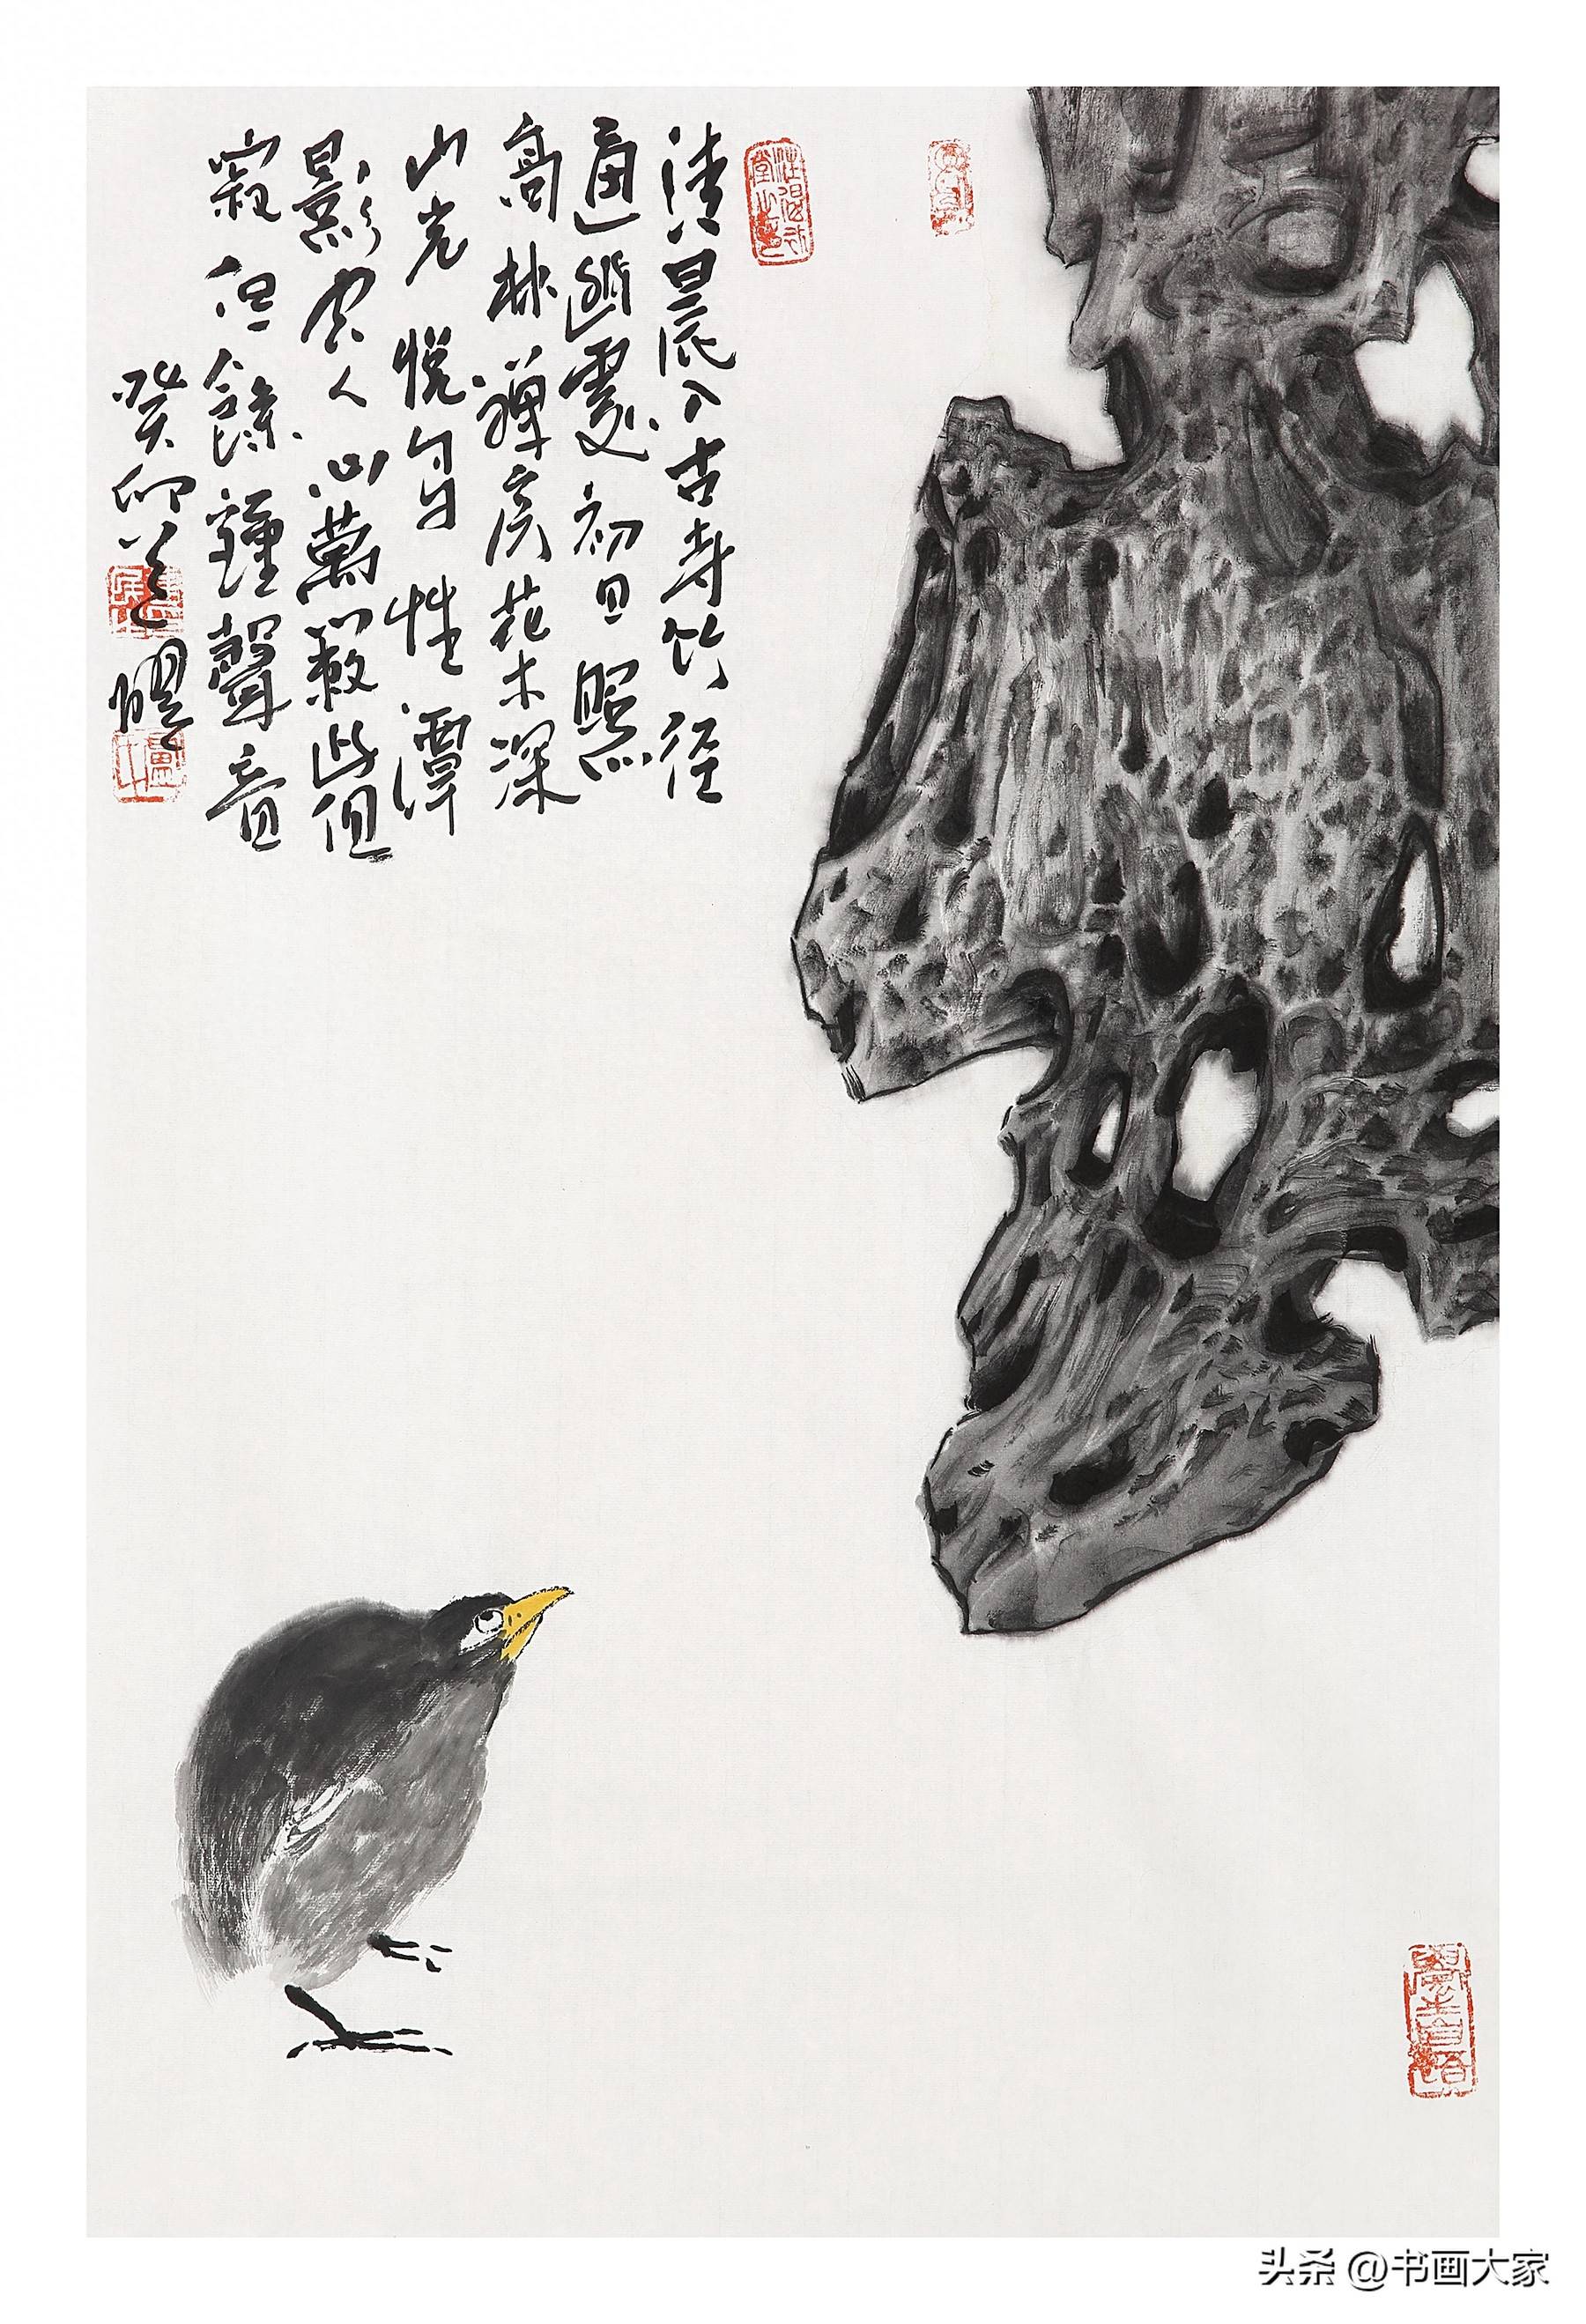 清晨入古寺竹径
通幽處初日照
高林禪房花木深
山光悦鸟性潭
影空人心萬籁此俱
寂但餘鐘聲音
癸卯
头条 @书画大家